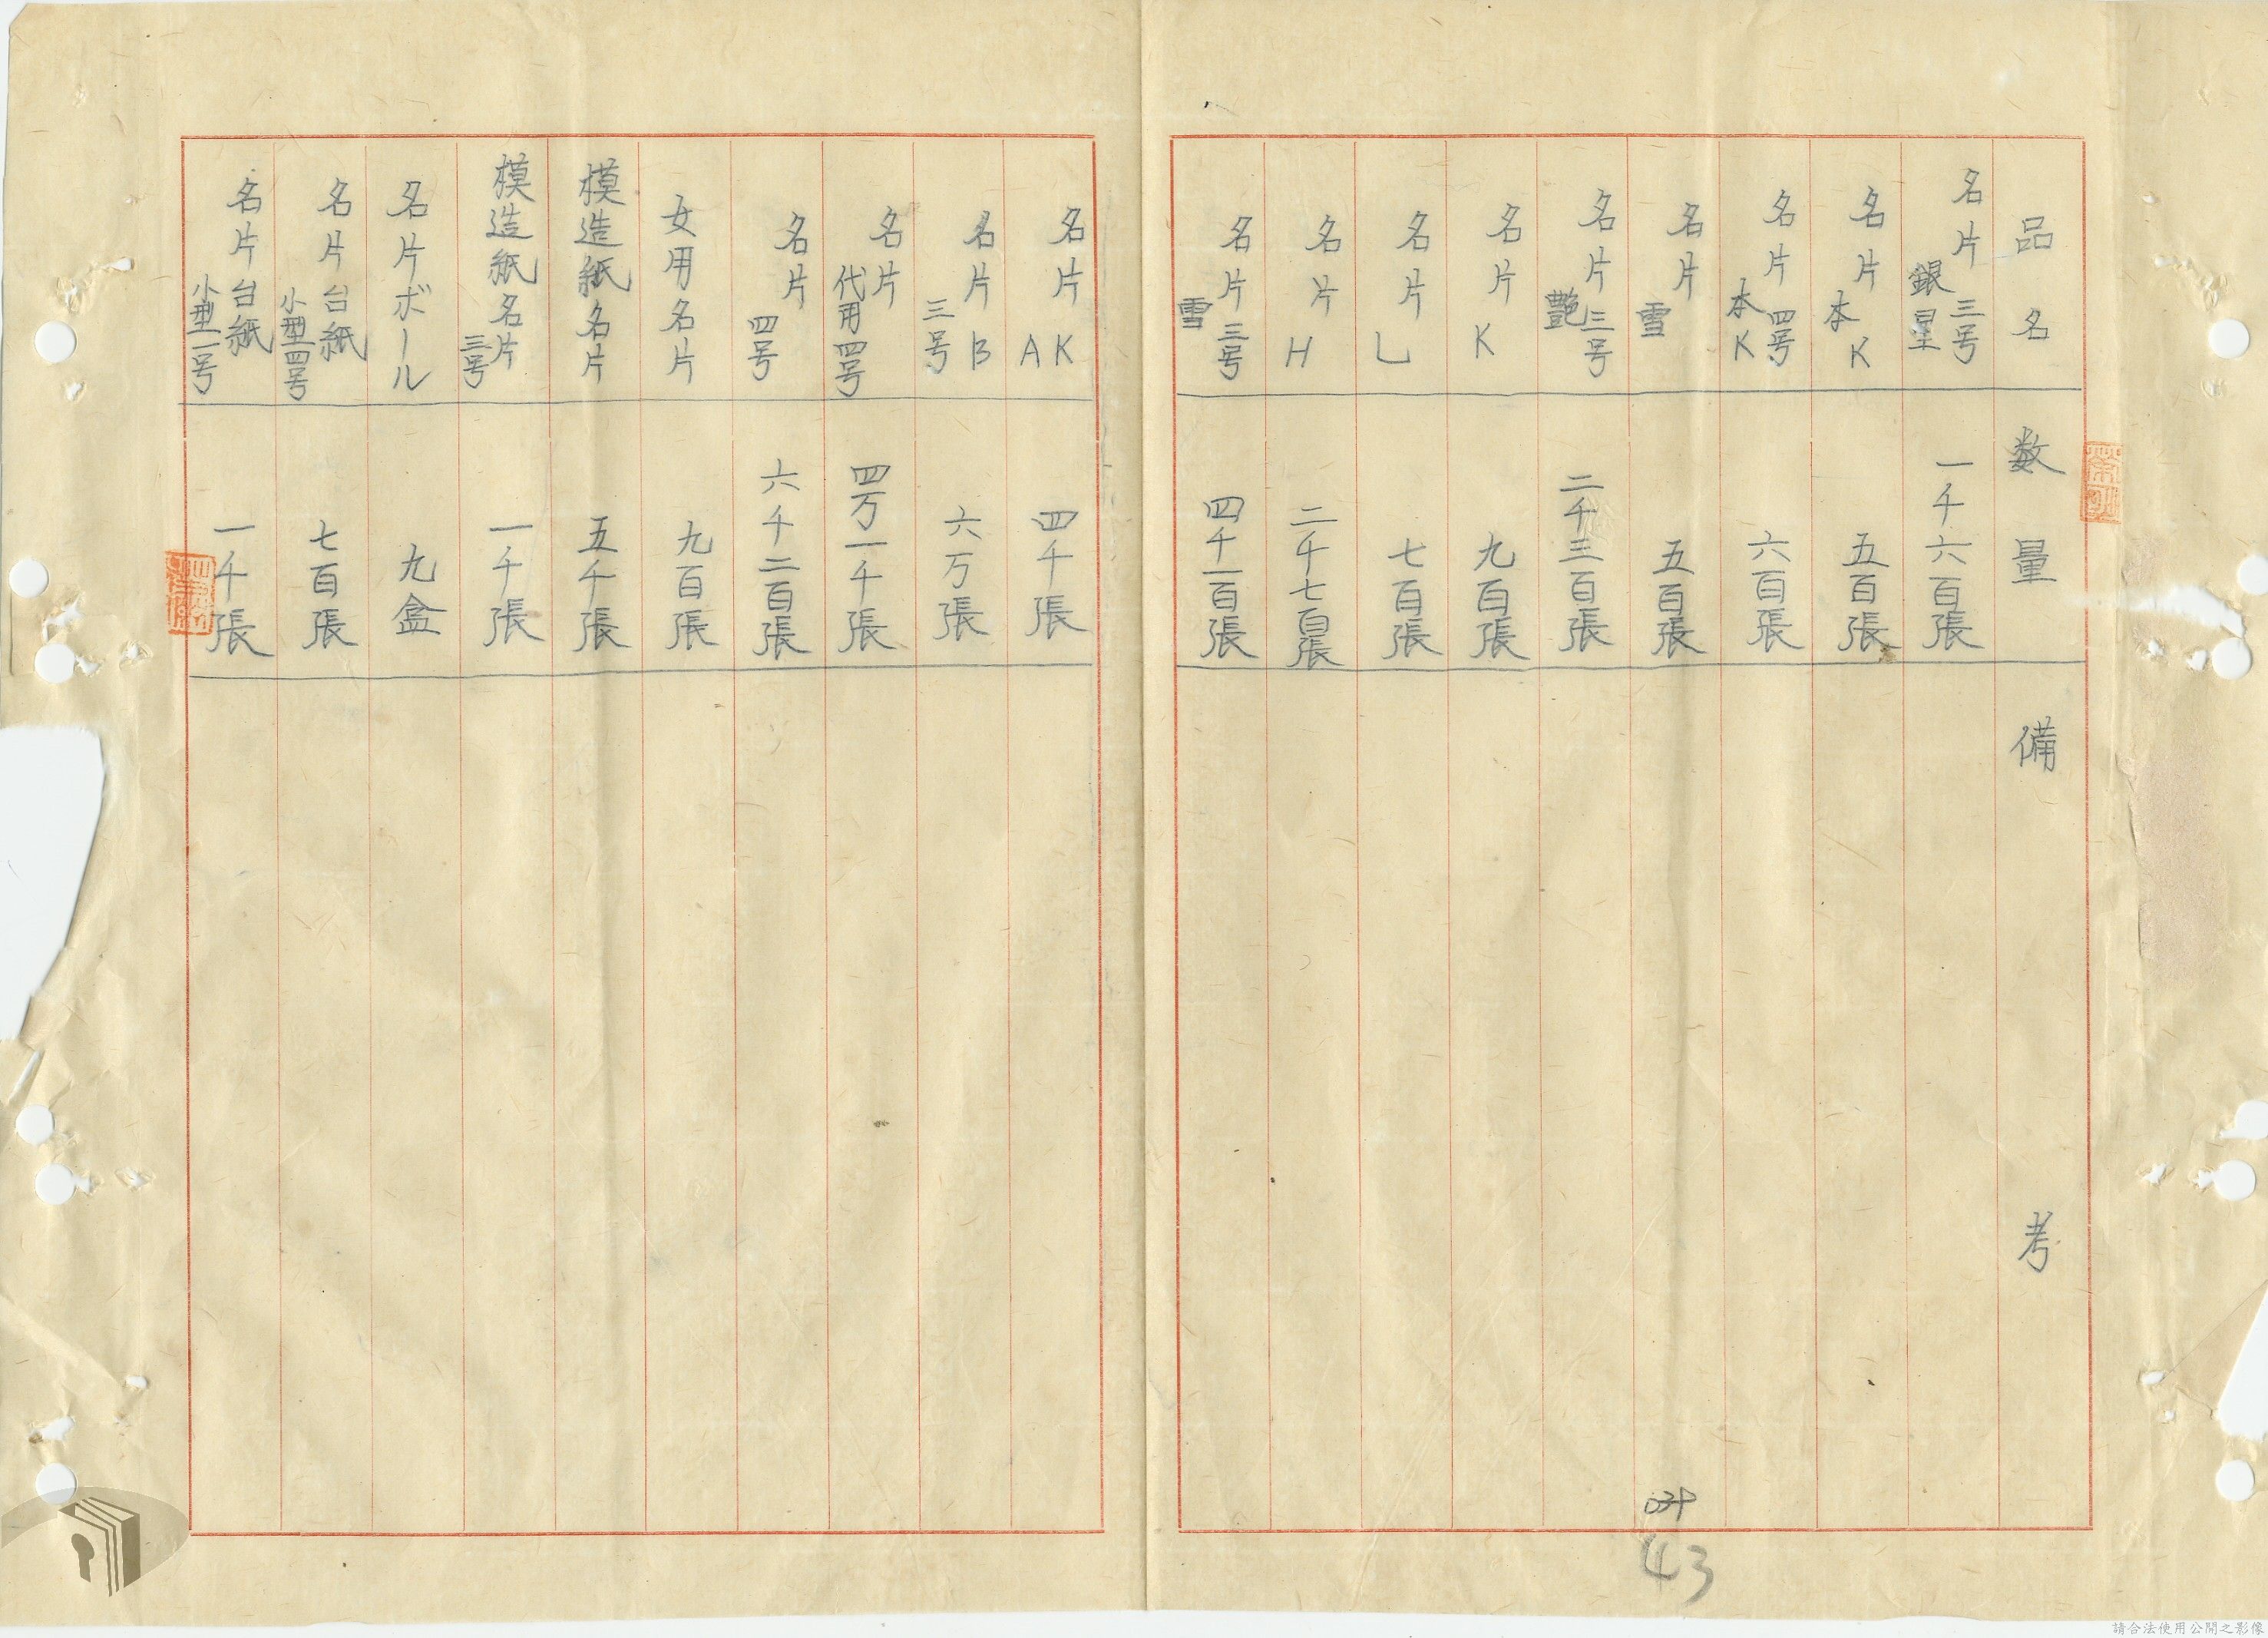 品名 数量 備考
名片三号銀星 一千六百張
名片本K 五百張
名片四号本K 六百張
名片雪 五百張
名片三号艶 二千三百張
名片K 九百張
名片L 七百張
名片H 二千七百張
名片三号雪 四千一百張
名片KA 四千張
名片B三号 六万張
名片代用四号 四万一千張
名片四号 六千二百張
女用名片 九百張
模造紙名片 五千張
模造紙名片三号 一千張
名片ボール 九盒
名片台紙小型四号 七百張
名片台紙小型二号 一千張
43
請合法使用公開之影像